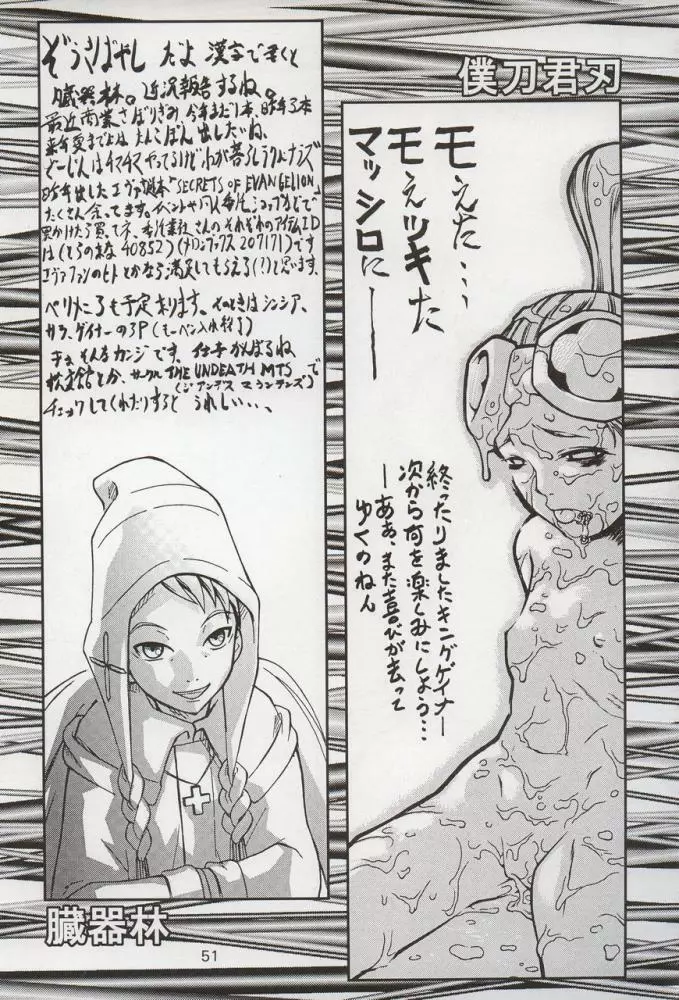 僕刀君刃
モえた…
モえツキた
マッシロに――
終ったりましたキングゲイナー
次から何を楽しみにしよう…
―あぁ、また喜びが去って
ゆくのねん
ぞうきばやし だよ 漢字で書くと
臓器林。近況報告するね。
最近商業さぼりぎみ、今年まだ1本、昨年3本
来年夏までには たんこぼん 出したいね。
どーじんはチマチマやってるけど
昨年出したエヴァ 本「SECRETS OF EVANGELION」
たくさん余ってます。イベントや同人 ショップなどで
見かけたら買って さんのそれぞれのアイテムID
は(とらのあな 40852)(メロンブックス 207171)です
エヴァファンのヒトとかなら満足してもらえる(?)と思います。
ペリメニ3も予定あります。そのときはシンシア、
サラ、ゲイナーの3P
チョ そんなカンジです。仕事がんばるね
松文館とか、サークル THE UNDEATH MTS.で
(ジ アンデス マウンテンズ)
チェックしてくれたりすると うれしい…、
臓器林
51